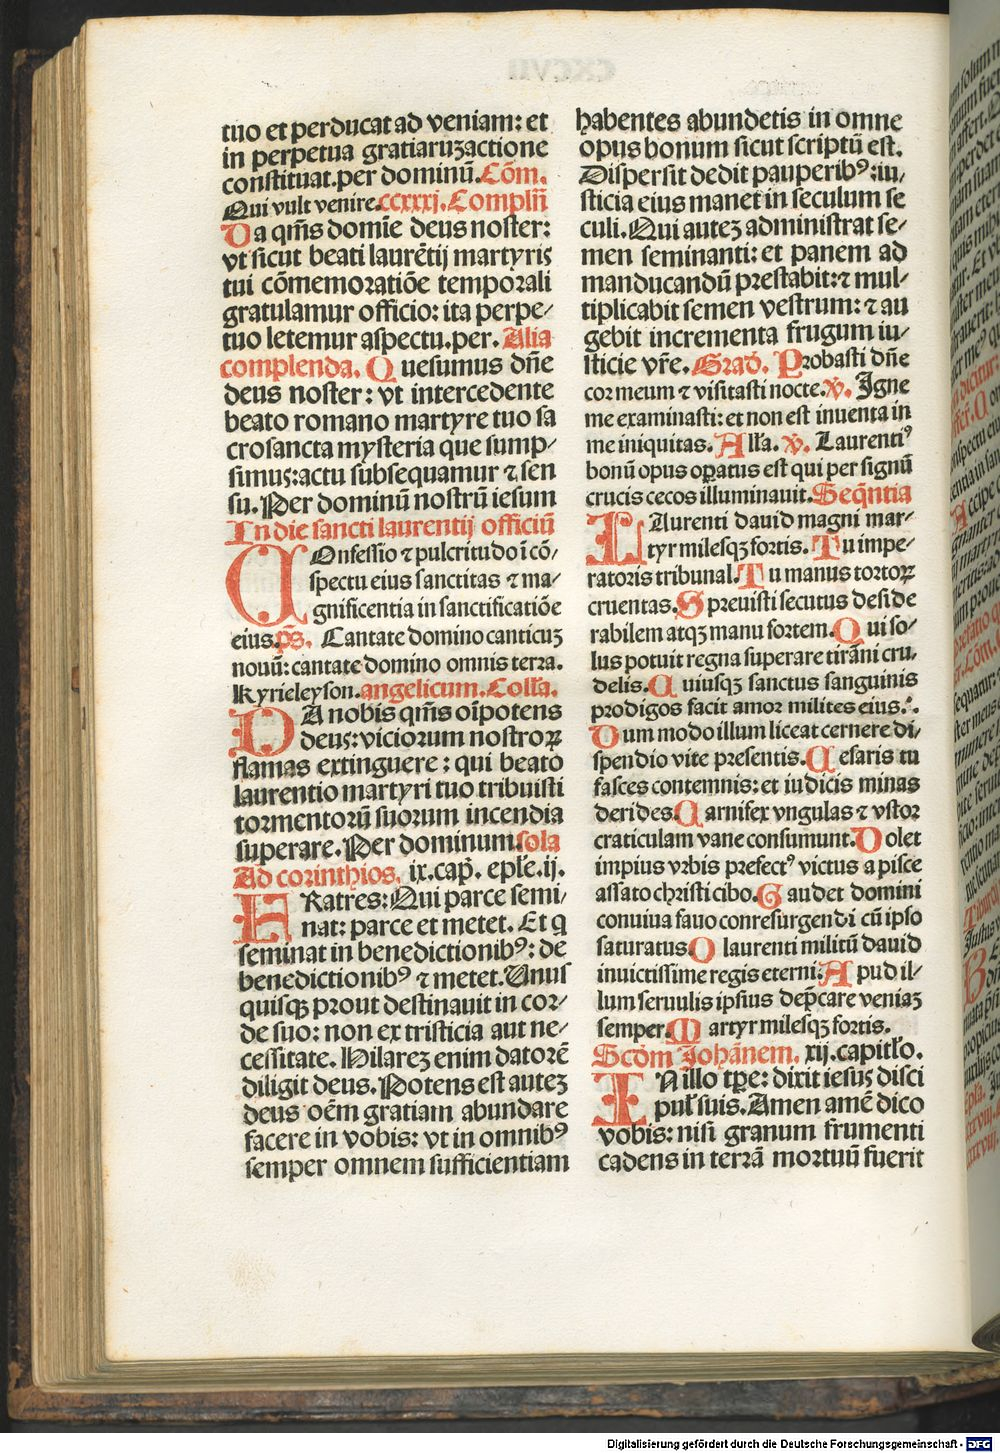 tuo et perducat ad veniam: et
in perpetua gratiaruꝫactione
constituat.per dominū.Cōm.
Qui vult venire.ccxxxj.Complm̄
Da qm̄s domie deus noster:
vt sicut beati laurētij martyris
tui cōmemoratiōe temporali
gratulamur officio: ita perpe-
tuo letemur aspectu.per. Alia
complenda. Quesumus dn̄e
deus noster: vt intercedente
beato romano martyre tuo sa
crosancta mysteria que sump-
simus:actu subsequamur ⁊ sen
su. Per dominū nostrū iesum
In die sancti laurentij officiū
COnfessio ⁊ pulcritudo ī cō-
spectu eius sanctitas ⁊ ma-
gnificentia in sanctificatiōe
eius.ps̄. Cantate domino canticuꝫ
nouū: cantate domino omnis terra.
Kyrieleyson.angelicum.Coll'a.
DA nobis qm̄s oīpotens
deus:viciorum nostroꝝ
flamas extinguere: qui beato
laurentio martyri tuo tribuisti
tormentorū suorum incendia
superare. Per dominum.sola
Ad corinthios. ix.cap̄. epl'e.ij.
FRatres:Qui parce semi-
nat: parce et metet. Et q
seminat in benedictionibꝰ: de
benedictionibꝰ ⁊ metet.Unus
quisqꝫ prout destinauit in cor-
de suo: non ex tristicia aut ne-
cessitate. Hilareꝫ enim datorē
diligit deus. Potens est auteꝫ
deus oēm gratiam abundare
facere in vobis: vt in omnibꝰ
semper omnem sufficientiam
habentes abundetis in omne
opus bonum sicut scriptū est.
Dispersit dedit pauperibꝰ:iu-
sticia eius manet in seculum se
culi. Qui auteꝫ administrat se-
men seminanti: et panem ad
manducandū prestabit:⁊ mul-
tiplicabit semen vestrum: ⁊ au
gebit incrementa frugum iu-
sticie vr̄e. Grad. Probasti dn̄e
cor meum ⁊ visitasti nocte.℣. Igne
me examinasti: et non est inuenta in
me iniquitas. All'a. ℣. Laurentiꝰ
bonū opus oꝑatus est qui per signū
crucis cecos illuminauit.Seqn̄tia
LAurenti dauid magni mar-
tyr milesqꝫ fortis. Tu impe-
ratoris tribunal.Tu manus tortoꝝ
cruentas.Spreuisti secutus deside
rabilem atqꝫ manu fortem.Qui so-
lus potuit regna superare tirāni cru-
delis.Cuiusqꝫ sanctus sanguinis
prodigos facit amor milites eius.
Dummodo illum liceat cernere di-
spendio vite presentis.Cesaris tu
fasces contemnis: et iudicis minas
derides.Carnifex vngulas ⁊ vstor
craticulam vane consumunt.Dolet
impius vrbis prefectꝰ victus a pisce
assato christi cibo.Gaudet domini
conuiua fauo conresurgendi cū ipso
saturatus.O laurenti militū dauid
inuictissime regis eterni:Apud il-
lum seruulis ipsius dep̄care veniaꝫ
semper.Martyr milesqꝫ fortis.
Scdm Johānem. xij.capitl'o.
IN illo tꝑe: dixit iesus disci
pul' suis. Amen amē dico
vobis: nisi granum frumenti
cadens in terrā mortuū fuerit
Digitalisierung gefördert durch die Deutsche Forschungsgemeinschaft - DFG